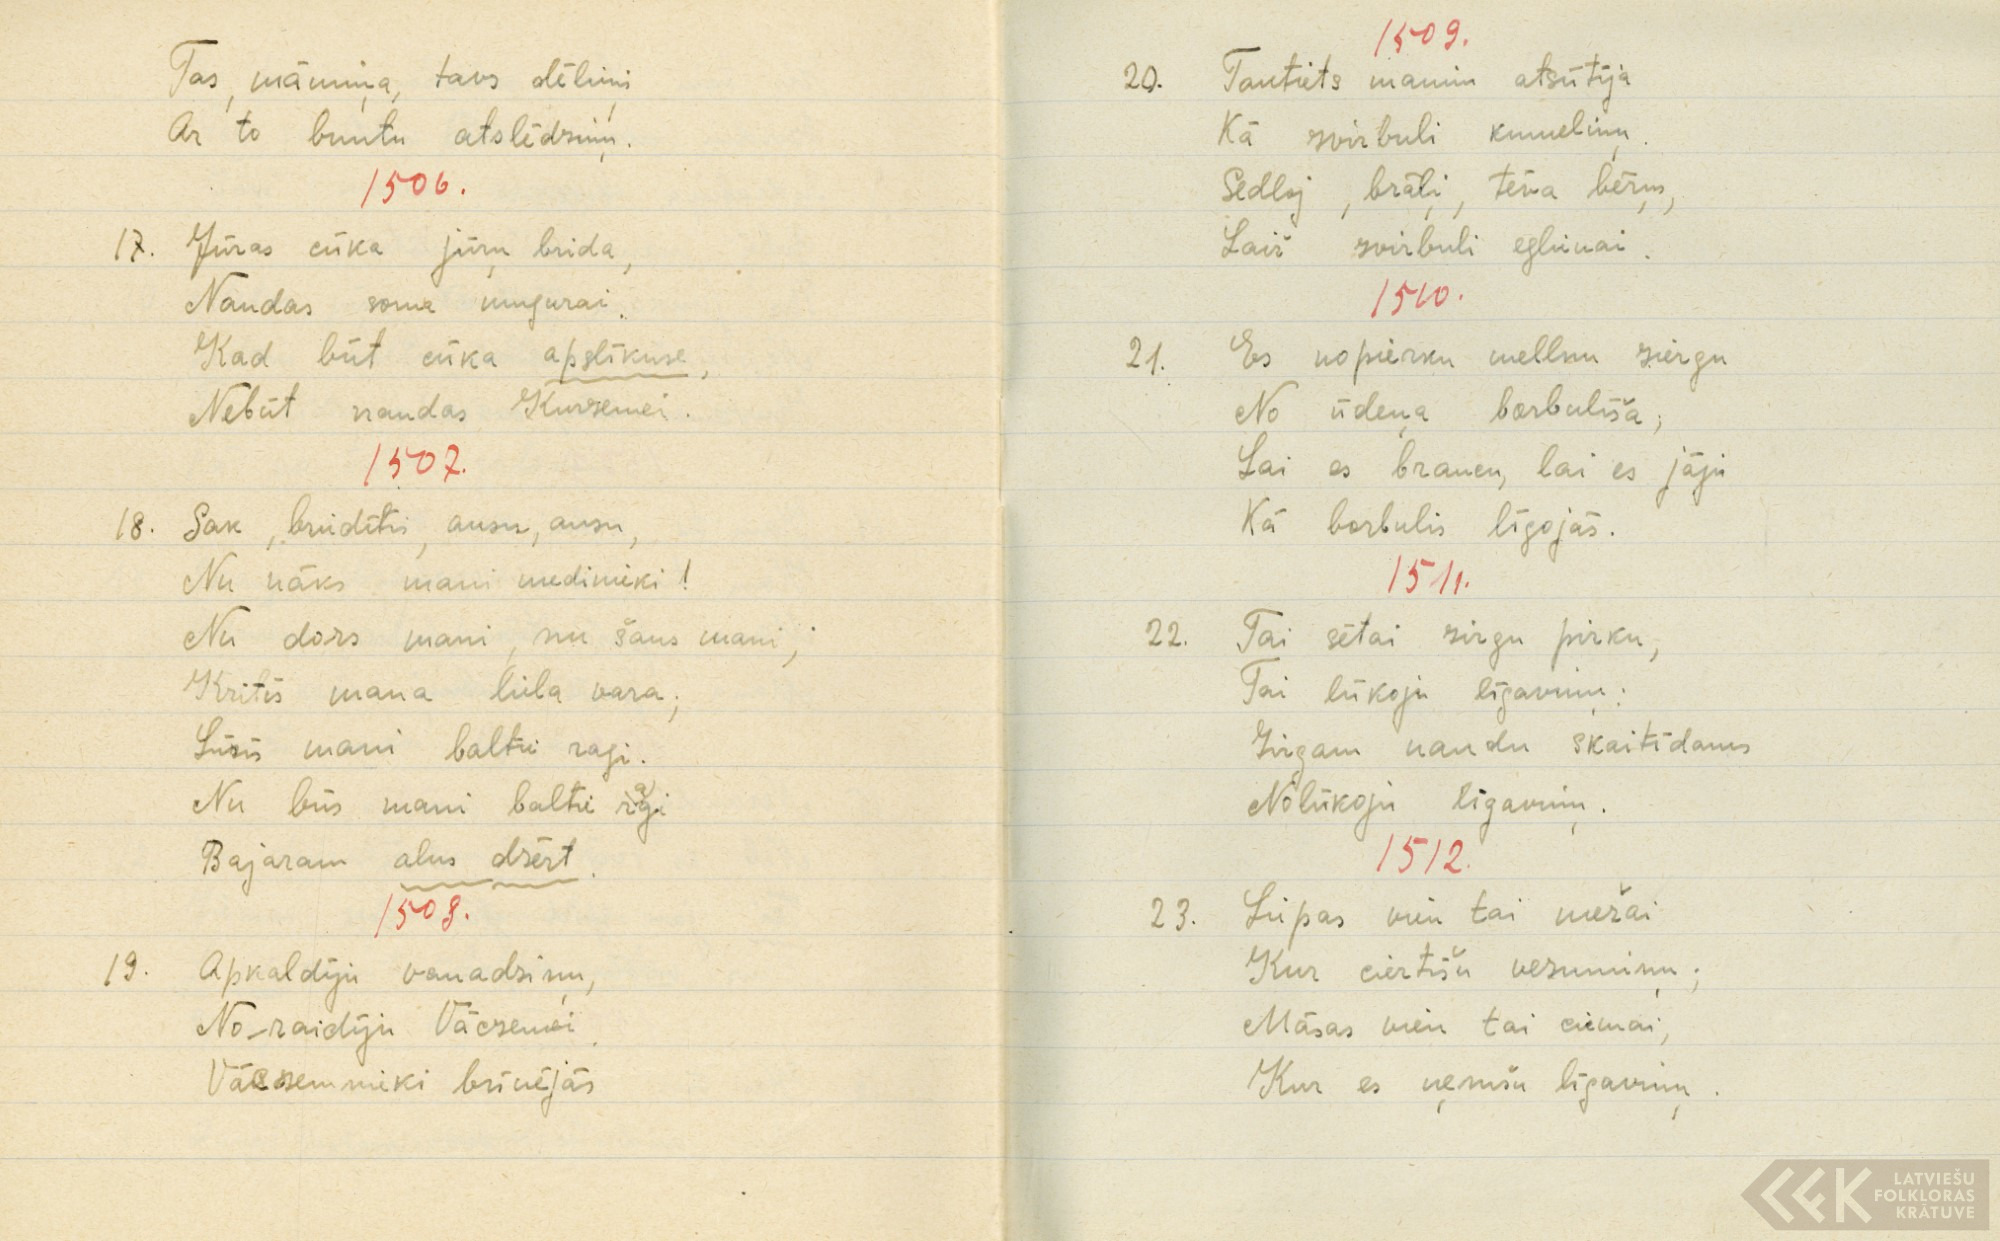 Tas, māmiņa, tavs dēliņi
Ar to buntu atslēdziņ.
1506.
17. Jūras cūka jūŗu brida,
Naudas soma mugurai.
Kad būt cūka apslīkuse,
Nebūt naudas Kurzemei.
1507.
18. Sak, briedītis, ausu, ausu,
Nu nāks mani medinieki!
Nu dors mani, nu šaus mani;
Kritīs mana liela vara;
Lūzīs mani baltie ragi.
Nu būs mani baltie ragi
Bajaram alus dzērt.
1508.
19. Apkaldiju vanadziņu,
No-raidiju Vāczemei.
Vāczemnieki brīnējās
1509.
20. Tautiets manim atsūtīja
Kā zvirbuli kumeliņu.
Sedloj, brāļi, tēva bērņs,
Laiž zvirbuli eglienai.
1510.
21. Es nopierku mellnu ziergu
No ūdeņa borbulīša;
Lai es braucu, lai es jāju
Kā borbulis līgojās.
1511.
22. Tai sētai zirgu pirku,
Tai lūkoju līgaviņu:
Zirgam naudu skaitīdams
Nolūkoju līgaviņu.
1512.
23. Liepas vien tai mežai
Kur ciertīšu vezumiņu;
Māsas vien tai ciemai,
Kur es ņemšu līgaviņu.
LATVIEŠU
FOLKLORAS
KRĀTUVE